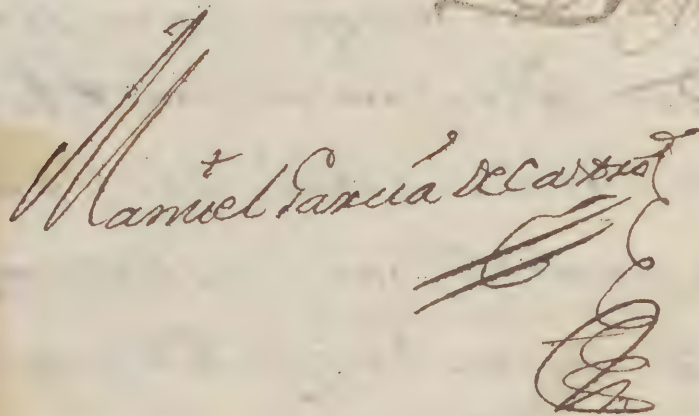 Manuel García de Castro